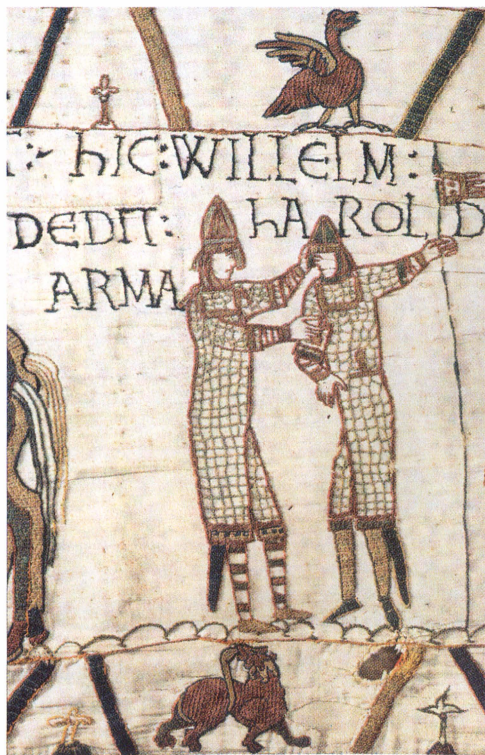 T:· hIC:WILLELM:
DEDIT: hAROLD
ARMA